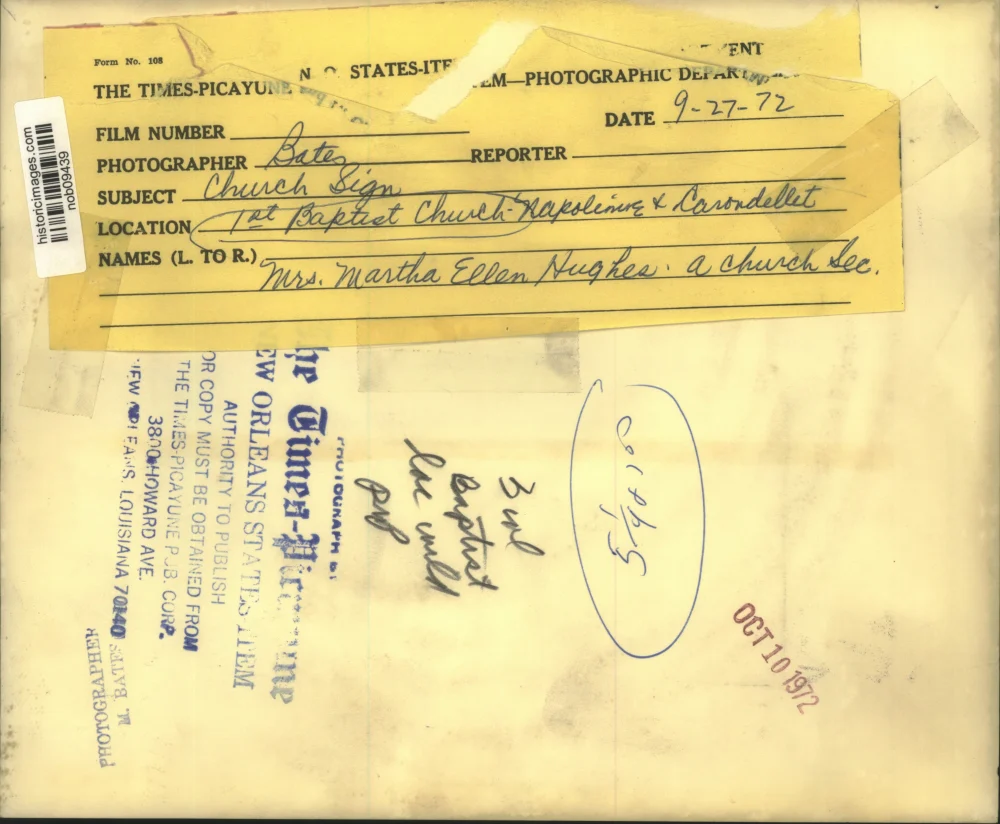 Form No. 108
THE TIMES-PICAYUNE N. O. STATES-ITEM—PHOTOGRAPHIC DEPARTMENT
DATE 9-27-72
FILM NUMBER
PHOTOGRAPHER Bates REPORTER
SUBJECT Church Sign
LOCATION 1st Baptist Church-Napolinne & Carondellet
NAMES (L. TO R.) Mrs. Martha Ellen Hughes. a church Sec.
historicimages.com
nob09439
PHOTOGRAPH BY
The Times-Picayune
NEW ORLEANS STATES-ITEM
AUTHORITY TO PUBLISH
OR COPY MUST BE OBTAINED FROM
THE TIMES-PICAYUNE PUB. CORP.
3800 HOWARD AVE.
NEW ORLEANS, LOUISIANA 70140
M. BATES
PHOTOGRAPHER
3 col
Baptist
OCT 10 1972